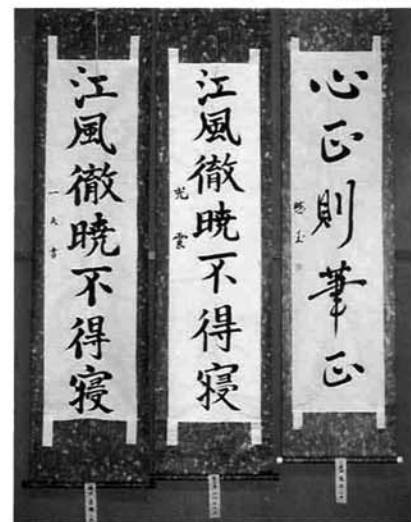 心正則筆正
江風徹暁不得寝
光雲
江風徹暁不得寝